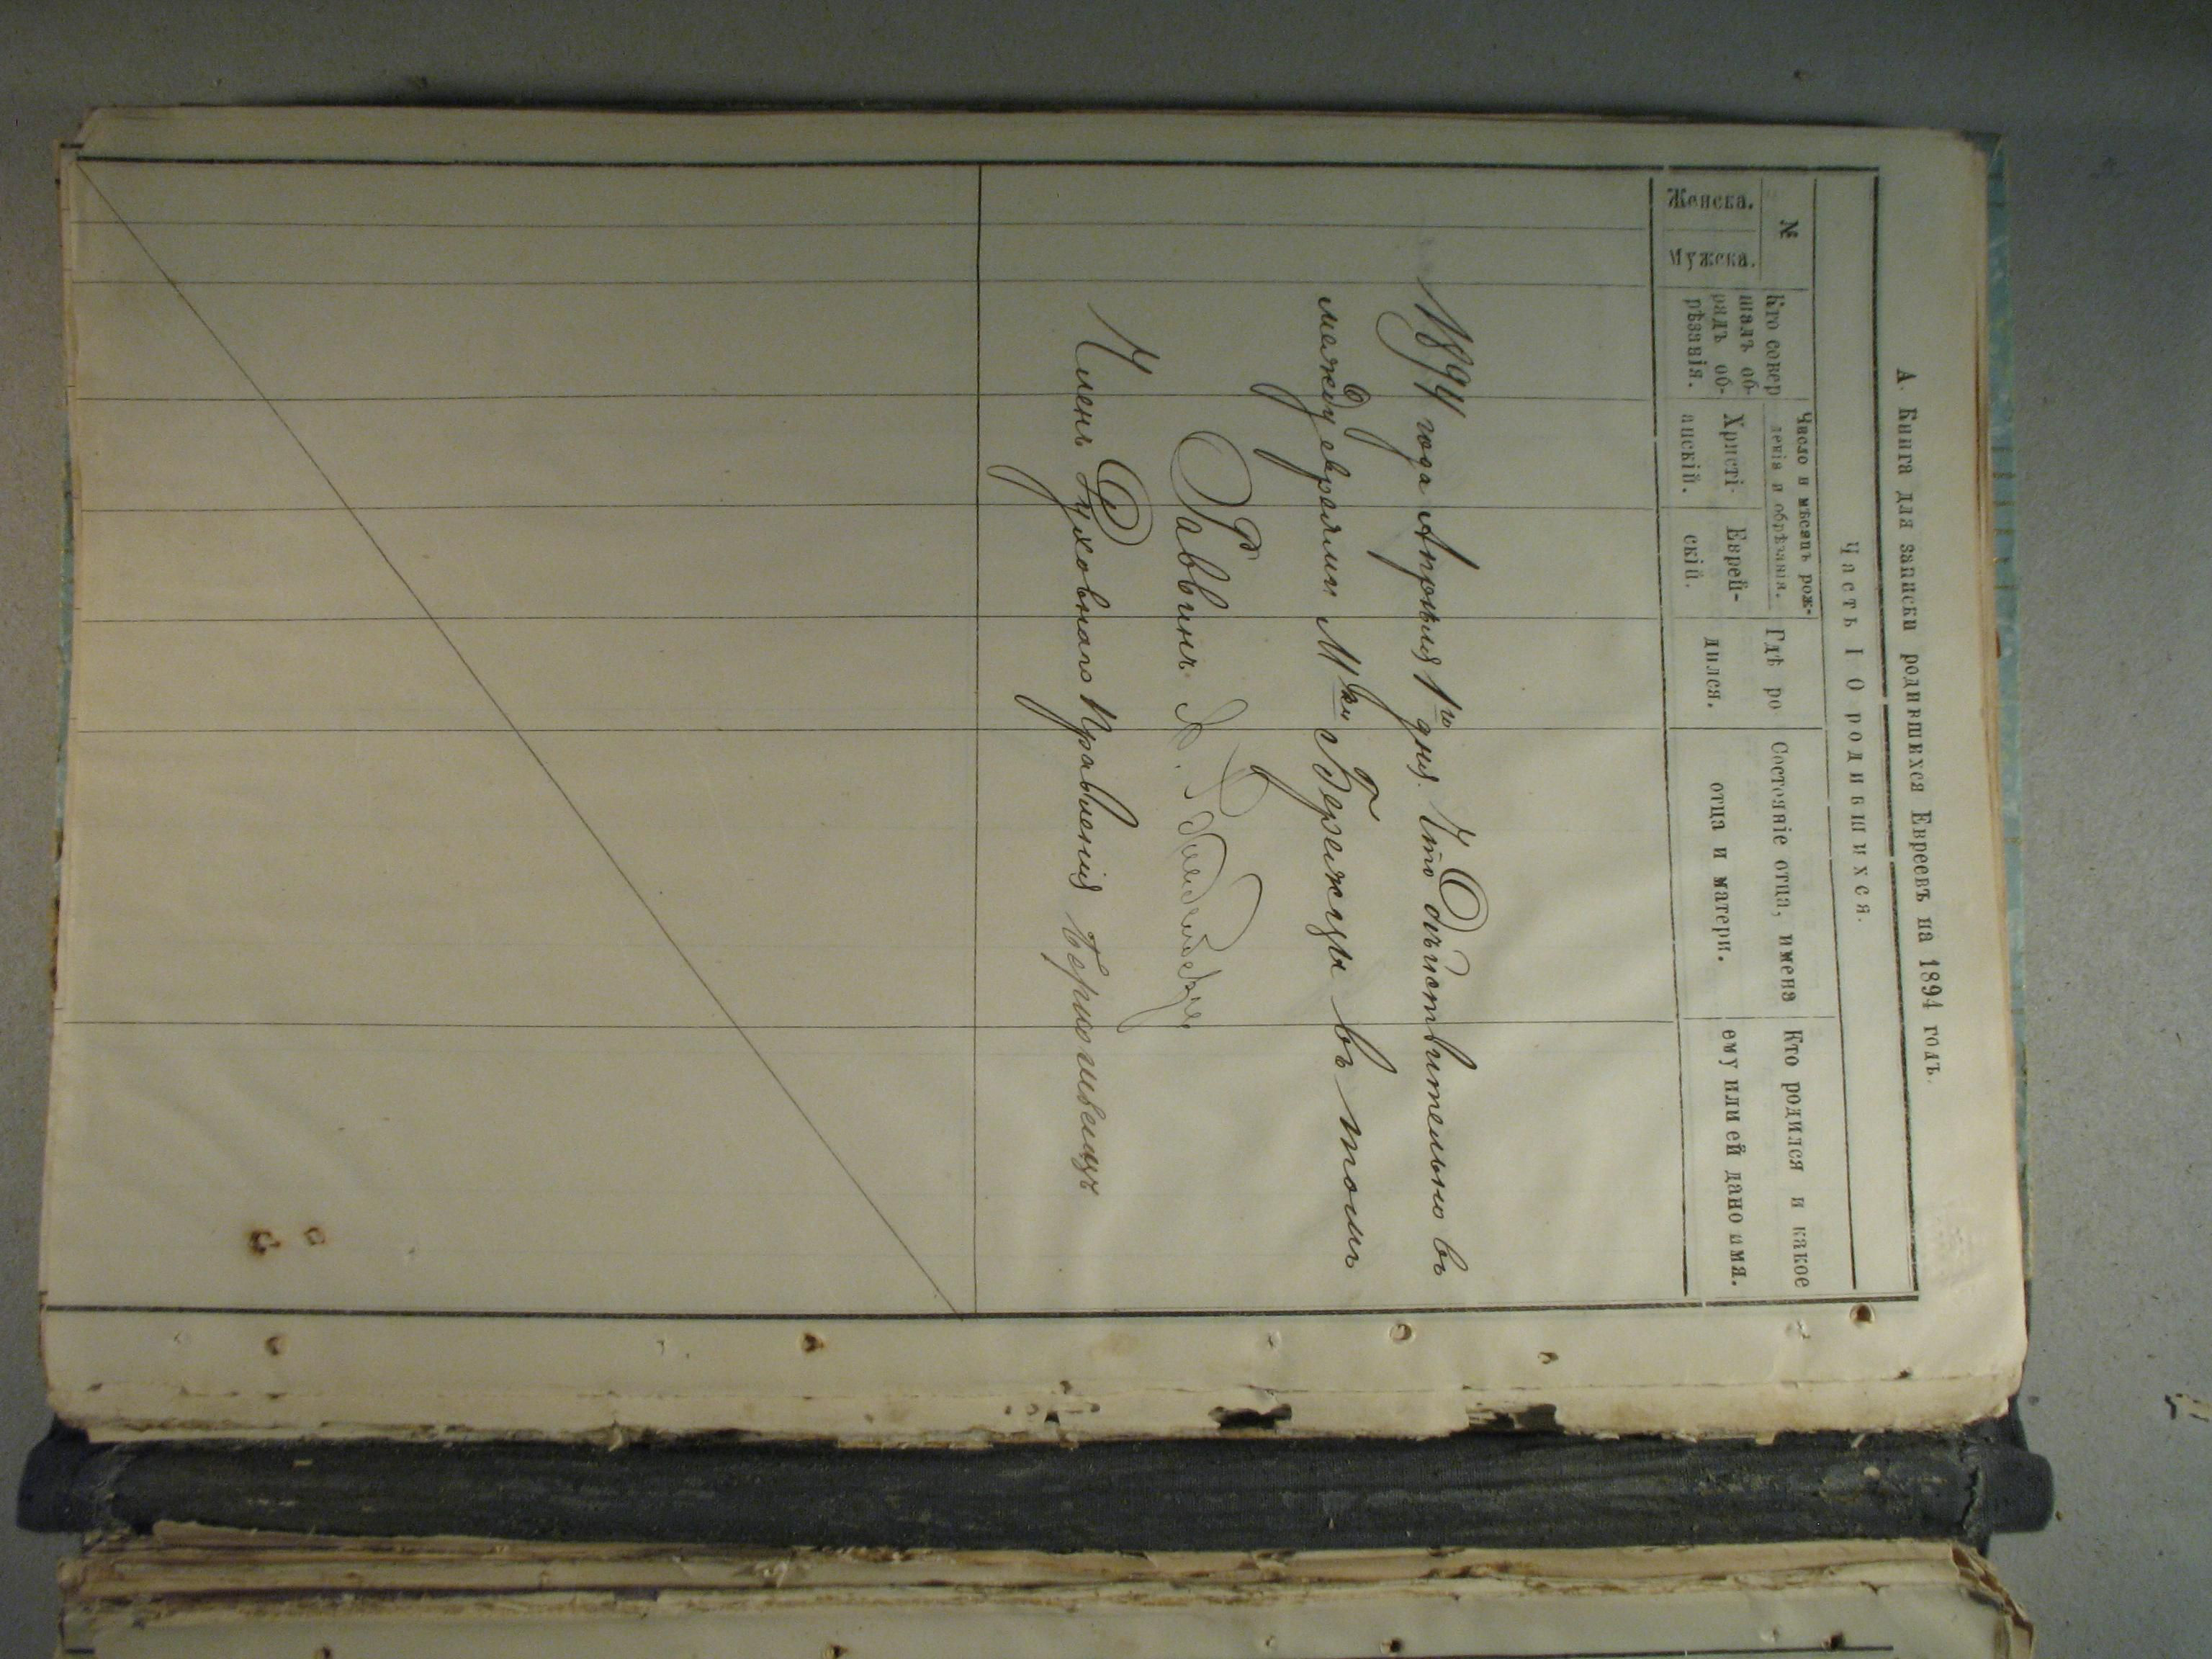 А. Книга для записки родившихся Евреевъ на 1894 годъ.
Часть I О родившихся.
№
Женска.
Мужска.
Кто совер
шалъ об-
рядъ об-
рѣзанія.
Число и мѣсяцъ рож-
денія и обрѣзанія.
Христі-
анскій.
Еврей-
скій.
Гдѣ ро
дился.
Состояніе отца, имена
отца и матери.
Кто родился и какое
ему или ей дано имя.
1894 года Апрѣля 1го дня. Что Дѣйствительно въ
между евреями Мки Бережцы въ томъ
Раввинъ А.
Членъ Духовнаго Правленія